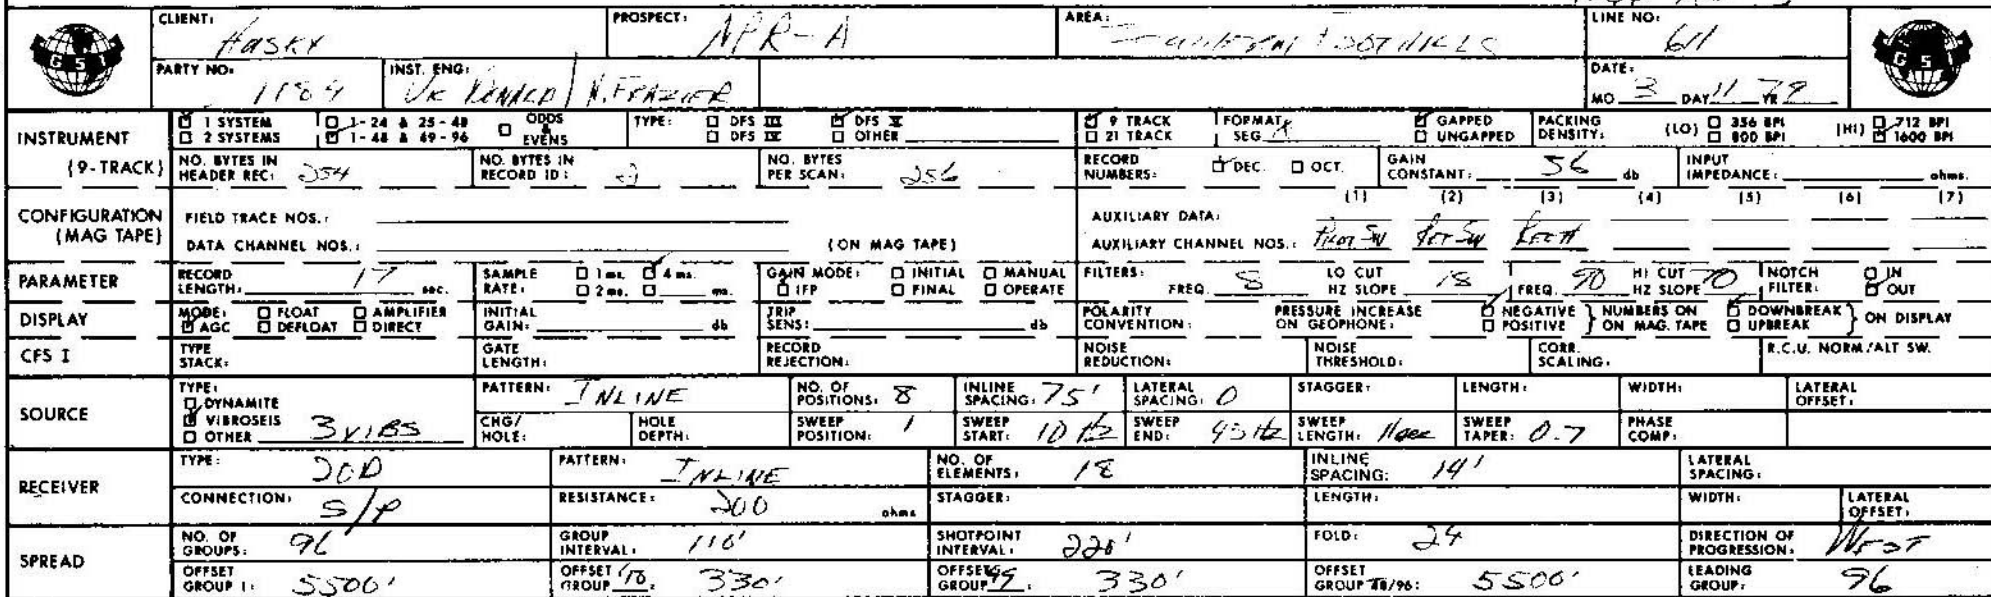 CLIENT: Husky PROSPECT: NPR-A AREA: FOOTHILLS LINE NO: 611
GSI
PARTY NO: 1184 INST. ENG: RONALD / N. FRAZIER DATE: MO 3 DAY 11 YR 79
GSI
INSTRUMENT (9-TRACK)
1 SYSTEM 1-24 & 25-48 ODDS & EVENS TYPE: DFS III DFS V 9 TRACK FORMAT: GAPPED PACKING DENSITY: (LO) 356 BPI (HI) 712 BPI
2 SYSTEMS 1-48 & 49-96 DFS IV OTHER 21 TRACK SEG UNGAPPED 800 BPI 1600 BPI
NO. BYTES IN HEADER REC: 254 NO. BYTES IN RECORD ID: 2 NO. BYTES PER SCAN: 256 RECORD NUMBERS: DEC. OCT. GAIN CONSTANT: 56 db INPUT IMPEDANCE: ohms.
CONFIGURATION (MAG TAPE)
(1) (2) (3) (4) (5) (6) (7)
FIELD TRACE NOS.: AUXILIARY DATA:
DATA CHANNEL NOS.: (ON MAG TAPE) AUXILIARY CHANNEL NOS.: Pilot SW Ret SW
PARAMETER RECORD LENGTH: 17 sec. SAMPLE RATE: 1 ms. 4 ms. 2 ms. ms. GAIN MODE: INITIAL MANUAL IFP FINAL OPERATE FILTERS: FREQ. 8 LO CUT HZ SLOPE 18 FREQ. 90 HI CUT HZ SLOPE 70 NOTCH FILTER: IN OUT
DISPLAY MODE: FLOAT AMPLIFIER AGC DEFLOAT DIRECT INITIAL GAIN: db TRIP SENS: db POLARITY CONVENTION: PRESSURE INCREASE ON GEOPHONE: NEGATIVE POSITIVE NUMBERS ON ON MAG. TAPE DOWNBREAK UPBREAK ON DISPLAY
CFS I TYPE STACK: GATE LENGTH: RECORD REJECTION: NOISE REDUCTION: NOISE THRESHOLD: CORR. SCALING: R.C.U. NORM/ALT SW.
SOURCE
TYPE: DYNAMITE VIBROSEIS OTHER 3 VIBS
PATTERN: INLINE NO. OF POSITIONS: 8 INLINE SPACING: 75' LATERAL SPACING: 0 STAGGER: LENGTH: WIDTH: LATERAL OFFSET:
CHG/HOLE: HOLE DEPTH: SWEEP POSITION: 1 SWEEP START: 10 Hz SWEEP END: 45 Hz SWEEP LENGTH: 11 sec SWEEP TAPER: 0.7 PHASE COMP:
RECEIVER
TYPE: 20D PATTERN: INLINE NO. OF ELEMENTS: 18 INLINE SPACING: 14' LATERAL SPACING:
CONNECTION: S/P RESISTANCE: 200 ohms STAGGER: LENGTH: WIDTH: LATERAL OFFSET:
SPREAD
NO. OF GROUPS: 96 GROUP INTERVAL: 110' SHOTPOINT INTERVAL: 220' FOLD: 24 DIRECTION OF PROGRESSION: WEST
OFFSET GROUP 1: 5500' OFFSET GROUP: 330' OFFSET GROUP 49: 330' OFFSET GROUP 48/96: 5500' LEADING GROUP: 96